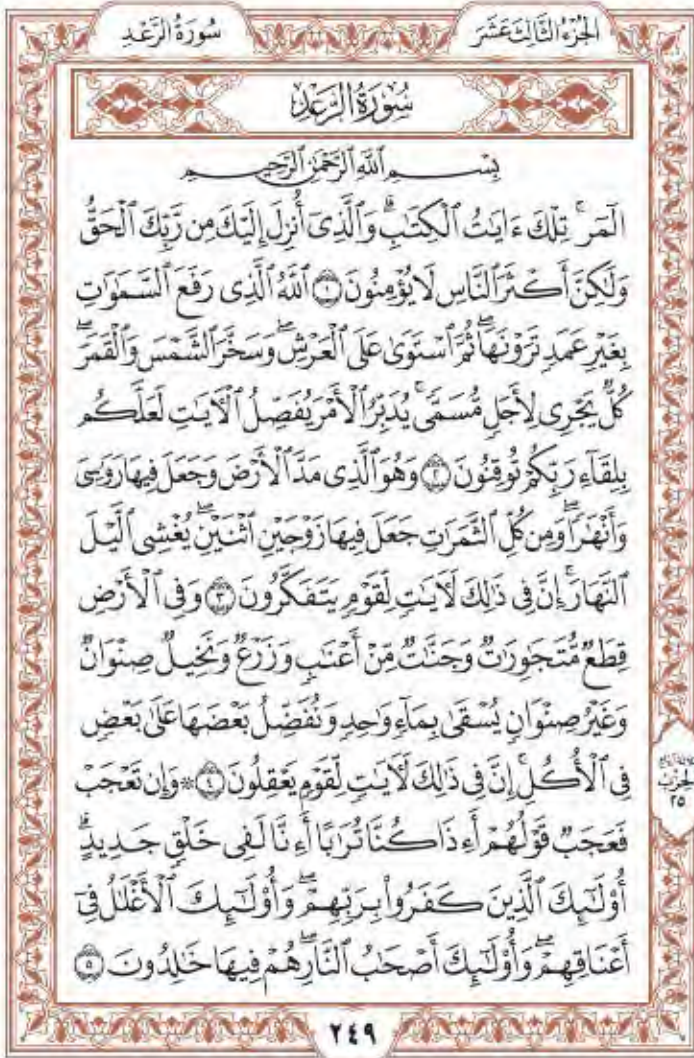 الجزء الثالث عشر
سورة الرعد
سورة الرعد
بِسْمِ ٱللَّهِ ٱلرَّحْمَٰنِ ٱلرَّحِيمِ
الٓمٓر ۚ تِلْكَ ءَايَٰتُ ٱلْكِتَٰبِ ۗ وَٱلَّذِىٓ أُنزِلَ إِلَيْكَ مِن رَّبِّكَ ٱلْحَقُّ
وَلَٰكِنَّ أَكْثَرَ ٱلنَّاسِ لَا يُؤْمِنُونَ ١ ٱللَّهُ ٱلَّذِى رَفَعَ ٱلسَّمَٰوَٰتِ
بِغَيْرِ عَمَدٍ تَرَوْنَهَا ۖ ثُمَّ ٱسْتَوَىٰ عَلَى ٱلْعَرْشِ ۖ وَسَخَّرَ ٱلشَّمْسَ وَٱلْقَمَرَ ۖ
كُلٌّ يَجْرِى لِأَجَلٍ مُّسَمًّى ۚ يُدَبِّرُ ٱلْأَمْرَ يُفَصِّلُ ٱلْءَايَٰتِ لَعَلَّكُم
بِلِقَآءِ رَبِّكُمْ تُوقِنُونَ ٢ وَهُوَ ٱلَّذِى مَدَّ ٱلْأَرْضَ وَجَعَلَ فِيهَا رَوَٰسِىَ
وَأَنْهَٰرًا ۖ وَمِن كُلِّ ٱلثَّمَرَٰتِ جَعَلَ فِيهَا زَوْجَيْنِ ٱثْنَيْنِ ۖ يُغْشِى ٱلَّيْلَ
ٱلنَّهَارَ ۚ إِنَّ فِى ذَٰلِكَ لَءَايَٰتٍ لِّقَوْمٍ يَتَفَكَّرُونَ ٣ وَفِى ٱلْأَرْضِ
قِطَعٌ مُّتَجَٰوِرَٰتٌ وَجَنَّٰتٌ مِّنْ أَعْنَٰبٍ وَزَرْعٌ وَنَخِيلٌ صِنْوَانٌ
وَغَيْرُ صِنْوَانٍ يُسْقَىٰ بِمَآءٍ وَٰحِدٍ وَنُفَضِّلُ بَعْضَهَا عَلَىٰ بَعْضٍ
فِى ٱلْأُكُلِ ۚ إِنَّ فِى ذَٰلِكَ لَءَايَٰتٍ لِّقَوْمٍ يَعْقِلُونَ ٤ ۞ وَإِن تَعْجَبْ
فَعَجَبٌ قَوْلُهُمْ أَءِذَا كُنَّا تُرَٰبًا أَءِنَّا لَفِى خَلْقٍ جَدِيدٍ ۗ
أُو۟لَٰٓئِكَ ٱلَّذِينَ كَفَرُوا۟ بِرَبِّهِمْ ۖ وَأُو۟لَٰٓئِكَ ٱلْأَغْلَٰلُ فِىٓ
أَعْنَاقِهِمْ ۖ وَأُو۟لَٰٓئِكَ أَصْحَٰبُ ٱلنَّارِ ۖ هُمْ فِيهَا خَٰلِدُونَ ٥
الحزب
٢٥
٢٤٩